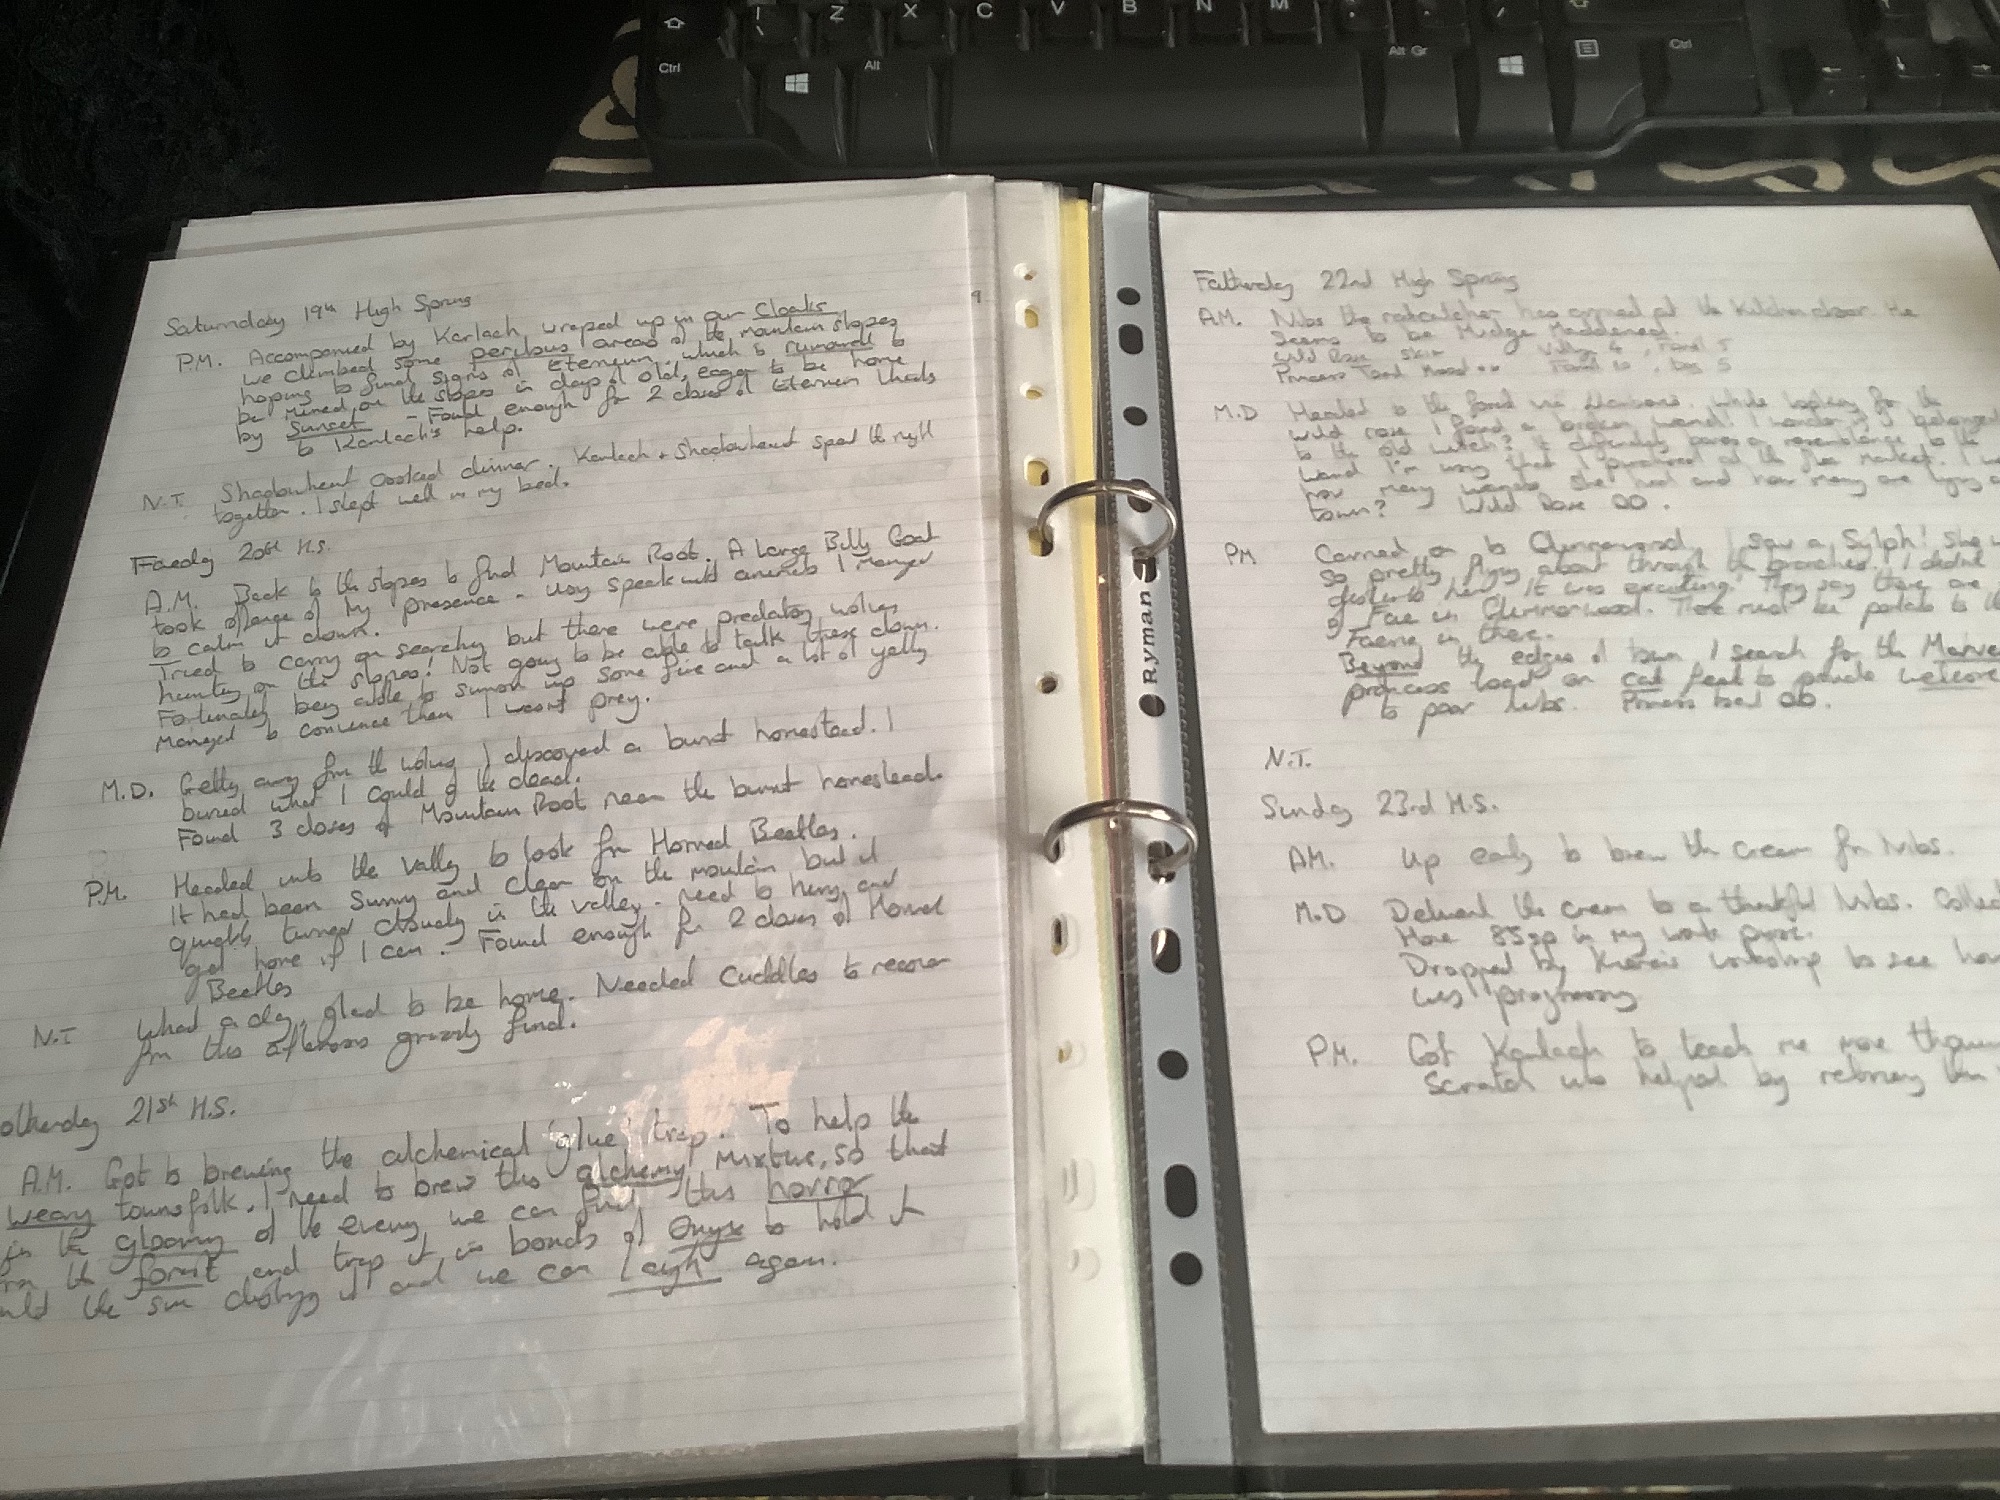 Saturnday 19th High Spring
P.M. Accompanied by Karlach, wraped up in our Cloaks
we climbed some perilous areas of the mountain slopes
hoping to find signs of Eterneum. which is rumoured to
be mined on the slopes in days of old, eager to be home
by Sunset - Found enough for 2 doses of Eternium thanks
to Karlach's help.
N.T. Shadowheart cooked dinner. Karlach + Shadowheart spend the night
together. I slept well in my bed.
Faeday 20th H.S.
A.M. Back to the slopes to find Mountain Root. A Large Billy Goat
took offence of my presence - using speak with animals I manged
to calm it down.
Tried to carry on searching but there were predatory wolves
hunting on the slopes! Not going to be able to talk these down.
Fortunately being able to sumon up some fire and a lot of yelling
managed to convence them I wasnt prey.
M.D. Getting away from the wolves I discoverd a burnt homestead. I
buried what I could of the dead.
Found 3 doses of Mountain Root near the burnt homestead.
P.M. Headed into the valley to look for Horned Beetles.
It had been Sunny and Clear on the moutain but it
quickly turned cloudy in the valley - need to hurry and
get home if I can - Found enough for 2 doses of Horned
Beetles
N.T What a day, glad to be home. Needed Cuddles to recover
from this afternoons grizzly find.
21st H.S.
A.M. Got to brewing the alchemical 'glue' trap. To help the
weary townsfolk. I need to brew this alchemy mixture, so that
in the gloomy of the evening we can find this horror
the forest and trap it in bonds of Onyx to hold it
the sun and we can laugh again.
9
Ryman
22nd High Spring
A.M. Nibs the ratcatcher has arrived at the Kitchen door. He
Seems to be Mudge Maddened.
Wild Rose Skin Valley 4, Forest 5
Princess Toad Mood
M.D Headed to the forest via. While looking for the
wild rose I found a broken wand! I wonder if it belonged
to the old witch? It definately bares a resemblance to the
wand I'm using that I purchased at the flea market. I
how many wands she had and how many are lying
town? - Wild Rose
PM Carried on to Glimmerwood. I saw a Sylph! She
so pretty flying about through the branches. I didnt
disturb her. It was exciting! They say there are
of Fae in Glimmerwood. There must be portals to
Faerie in there.
Beyond the edges of town I search for the
princess toad on
to poor Nibs. Princess toad
N.T.
Sunday 23rd H.S.
AM. Up early to brew the cream for Nibs.
M.D Deliverd the cream to a thankful Nibs.
Have 85sp in my work purse.
Dropped by workshop to see how
was progressing
P.M. Got Karlach to teach me more
Scratch who helped by
Ctrl
Alt
Z
X
C
V
B
N
M
Alt Gr
Ctrl